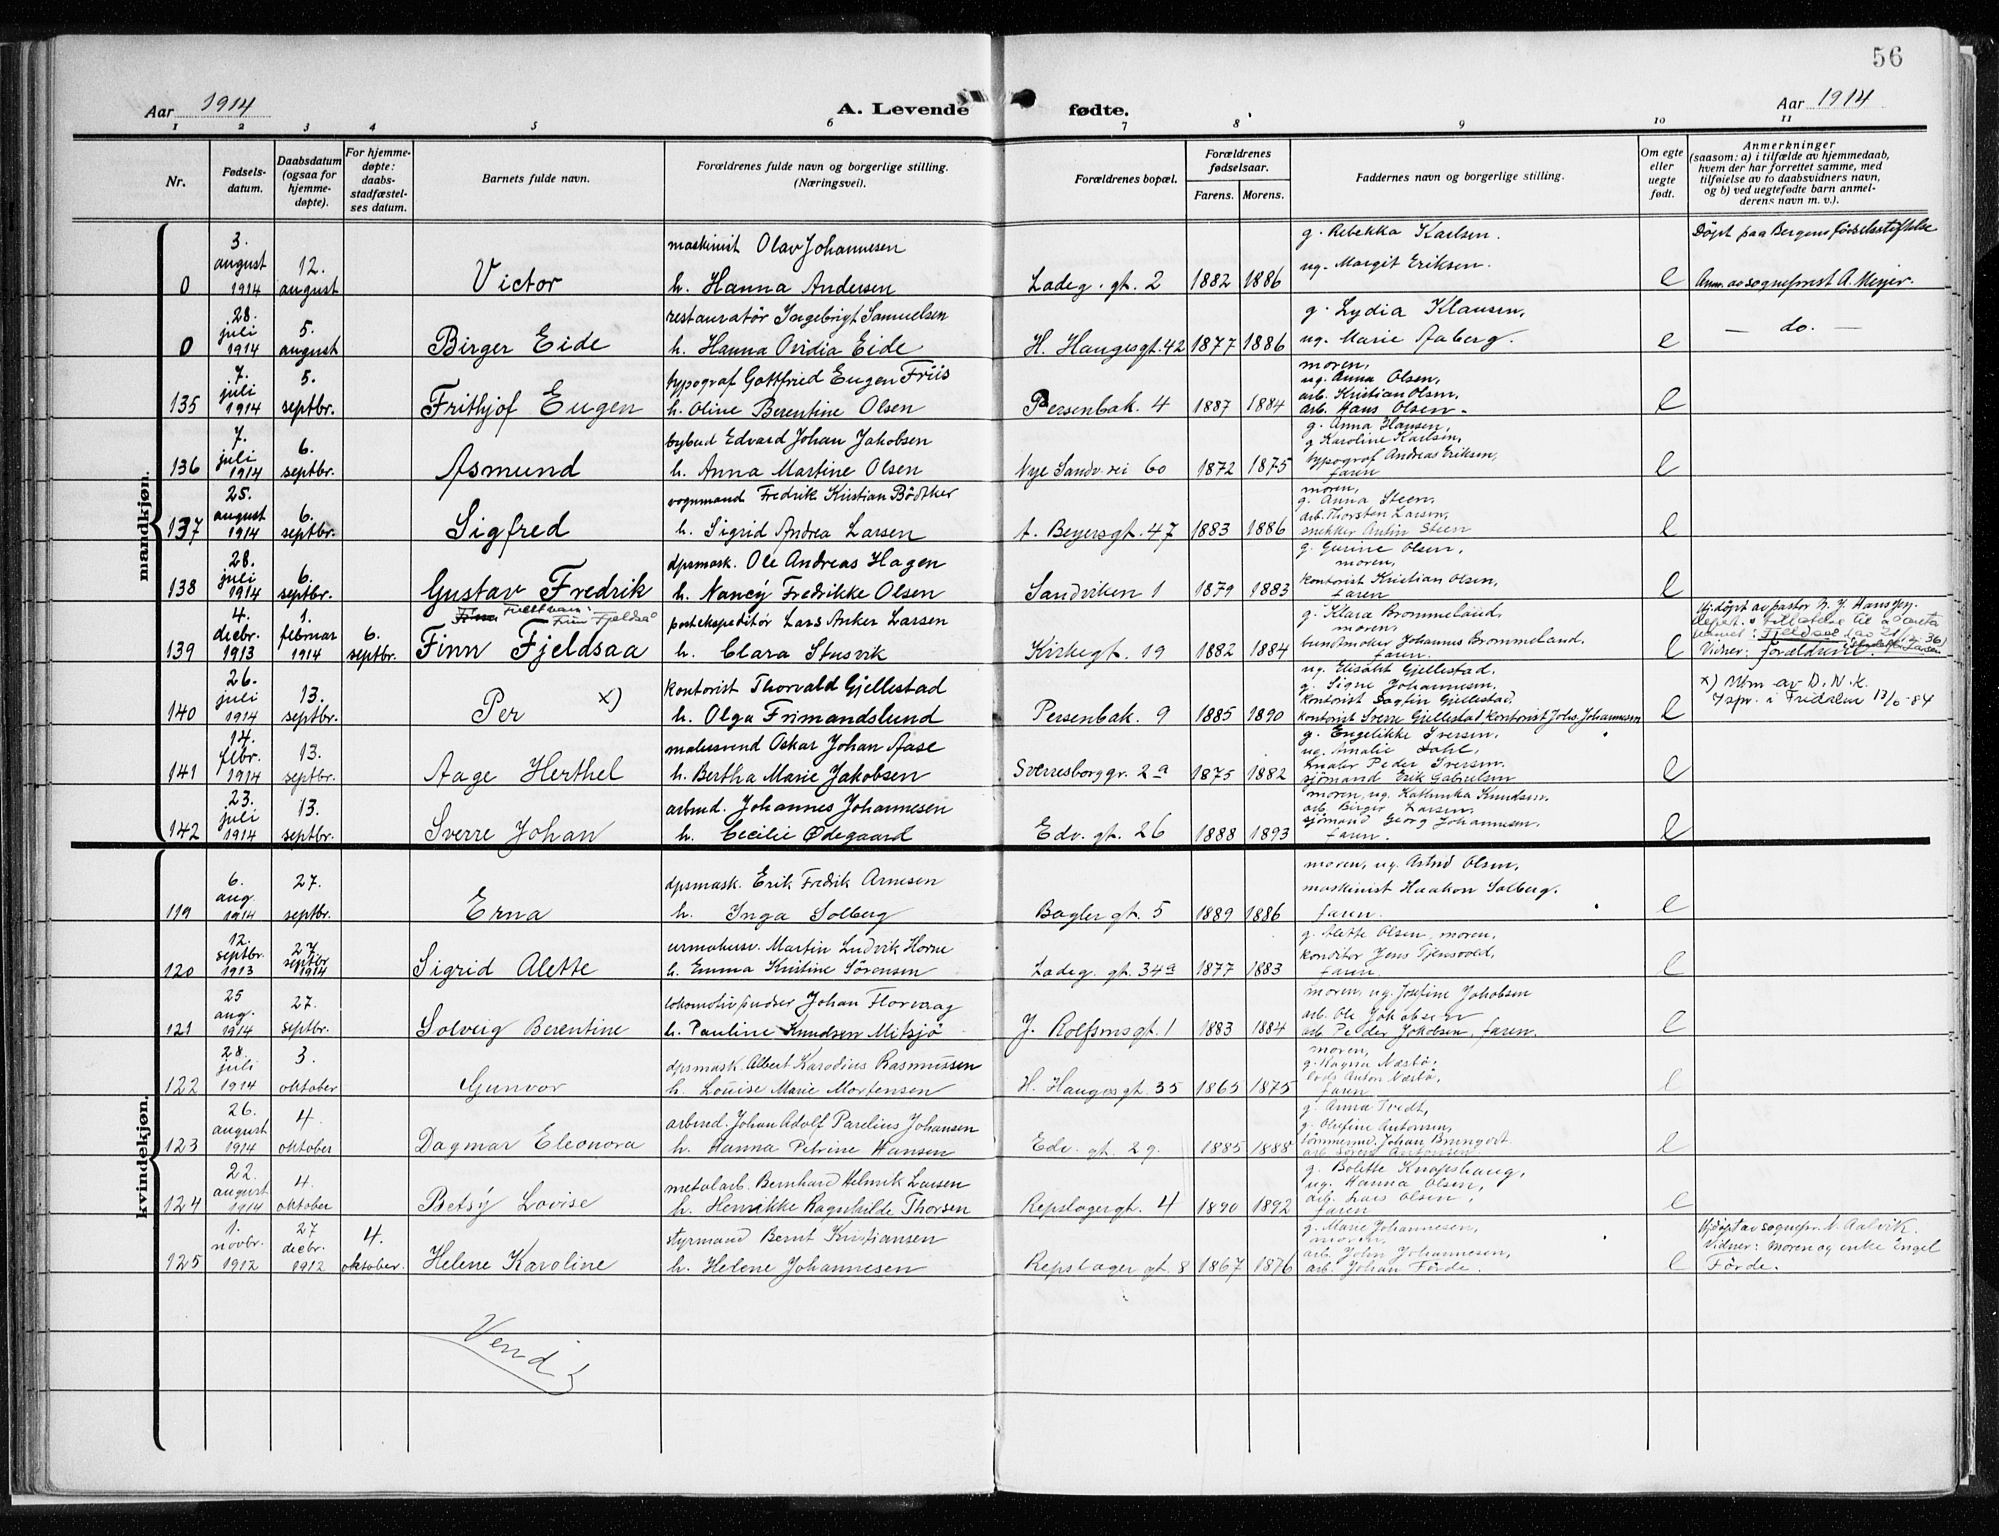 56
Aar 1914
A. Levende fødte.
Aar 1914
1 2 3 4 5 6 7 8 9 10 11
Nr.
Fødsels-
datum.
Daabsdatum
(ogsaa for
hjemme-
døpte).
For hjemme-
døpte:
daabs-
stadfæstel-
ses datum.
Barnets fulde navn.
Forældrenes fulde navn og borgerlige stilling.
(Næringsvei).
Forældrenes bopæl.
Forældrenes
fødselsaar.
Farens. Morens.
Faddernes navn og borgerlige stilling.
Om egte
eller
uegte
født.
Anmerkninger
(saasom: a) i tilfælde av hjemmedaab,
hvem der har forrettet samme, med
tilføielse av to daabsvidners navn,
og b) ved uegtefødte barn anmel-
derens navn m. v.).
mandkjøn.
0
3.
august
1914
12.
august
Victor
maskinist Olav Johannesen
h. Hanna Andersen
Ladeg. gt. 2
1882 1886
g. Rebekka Karlsen.
ug. Margit Eriksen.
e
Døpt paa Bergens fødselsstiftelse
Anm. av sogneprest A. Meyer.
0
28.
juli
1914
5.
august
Birger Eide
restauratør Ingebrigt Samuelsen
h. Hanna Ovidia Eide
H. Haugesgt. 42
1877 1886
g. Lydia Klausen,
ug. Marie Aaberg.
e
— do. —
135
7.
juli
1914
5.
septbr.
Frithjof Eugen
typograf Gottfried Eugen Friis
h. Oline Berentine Olsen
Persenbak. 4
1887 1884
moren,
ug. Anna Olsen,
arb. Kristian Olsen,
arb. Hans Olsen.
e
136
7.
juli
1914
6.
septbr.
Asmund
bybud Edvard Johan Jakobsen
h. Anna Martine Olsen
Nye Sandv. vei 60
1872 1875
g. Anna Hansen,
g. Karoline Karlsen,
typograf Andreas Eriksen,
faren
e
137
25.
august
1914
6.
septbr.
Sigfred
vognmand Fredrik Kristian Bödtker
h. Sigrid Andrea Larsen
A. Beyersgt. 47
1883 1886
moren,
g. Anna Steen,
arb. Thorsten Larsen,
snekker Anton Steen
e
138
28.
juli
1914
6.
septbr.
Gustav Fredrik
dpsmask. Ole Andreas Hagen
h. Nancy Fredrikke Olsen
Sandviken 1
1879 1883
g. Gurine Olsen,
moren,
kontorist Kristian Olsen,
faren
e
139
4.
decbr.
1913
1.
februar
1914
6.
septbr.
Fuldt navn:
Finn Fjeldsaa
Finn Fjeldsaa
postekspeditør Lars Anker Larsen
h. Clara Stusvik
Kirkegt. 19
1882 1884
g. Klara Brommeland,
moren,
buntmaker Johannes Brommeland.
faren
e
Hj.døpt av pastor
Vidner: forældrene.
140
26.
juli
1914
13.
septbr.
Per x)
kontorist Thorvald Gjellestad
h. Olga Frimandslund
Persenbak. 9
1885 1890
ug. Elisabet Gjellestad,
g. Signe Johannesen,
kontorist Dagfin Gjellestad,
kontorist Sverre Gjellestad kontorist Johs. Johannesen
e
x) Utm av D. N. K.
141
14.
febr.
1914
13.
septbr.
Aage Herthel
malersvend Oskar Johan Aase
h. Bertha Marie Jakobsen
Sverresborggr. 2a
1875 1882
g. Engelikke Iversen,
ug. Amalie Dahl,
maler Peder Iversen,
sjømand Erik Gabrielsen
e
142
23.
juli
1914
13.
septbr.
Sverre Johan
arbeid. Johannes Johannesen
h. Cecilie Ødegaard
Edv. gt. 26
1888 1893
moren, ug. Kathinka Knudsen.
arb. Birger Larsen,
sjömand Georg Johannesen,
faren.
e
kvindekjøn.
119
6.
aug.
1914
27.
septbr.
Erna
dpsmask. Erik Fredrik Arnesen
h. Inga Solberg
Bagler gt. 5
1889 1886
moren, ug. Astrid Olsen,
maskinist Haakon Solberg.
faren.
e
120
12.
septbr.
1913
27.
septbr
1914
Sigrid Alette
urmaker Martin Ludvik Horne
h. Emma Kristine Sörensen
Ladeg. gt. 34a
1877 1883
g. Alette Olsen, moren,
konditor Jens Tjensvold,
faren.
e
121
25
aug.
1914
27.
septbr.
Solveig Berentine
lokomotivpudser Johan Florvaag
h. Pauline Knudsen Mitsjö
J. Rolfsensgt. 1
1883 1884
moren, ug. Josefine Jakobsen
arb. Ole Jakobsen
arb. Peder Jakobsen, faren.
e
122
28.
juli
1914
3.
oktober
Gunvor
dpsmask. Albert Karodius Rasmussen
h. Louise Marie Mortensen
H. Hauges gt. 35
1865 1875
moren,
g. Magna Næstø,
lods Anton Næstø,
faren.
e
123
26.
august
1914
4.
oktober
Dagmar Eleonora
arbeid. Johan Adolf Parelius Johansen
h. Hanna Petrine Hansen
Edv. gt. 29.
1885 1888
g. Anna Tvedt,
g. Olufine Antonsen,
tømmermd. Johan Brungvdt.
arb. Søren Antonsen
e
124
22.
august
1914
4.
oktober
Betsy Lovise
metalarb. Bernhard Helmik Larsen
h. Henrikke Ragnhilde Thorsen
Repslagergt. 4
1890 1892
g. Bolette Knapshaug,
ug. Hanna Olsen,
arb. Lars Olsen,
faren
e
125
1.
novbr.
1912
27
decbr.
1912
4.
oktober.
Helene Karoline
styrmand Bernt Kristiansen
h. Helene Johannesen
Repslager gt. 8
1867 1876
g. Marie Johannesen,
moren,
arb. John Johannesen,
arb. Johan Förde.
e
Hj.døpt av sognepr. A. Aalvik.
Vidner: Moren og enke Engel
Förde.
Vend